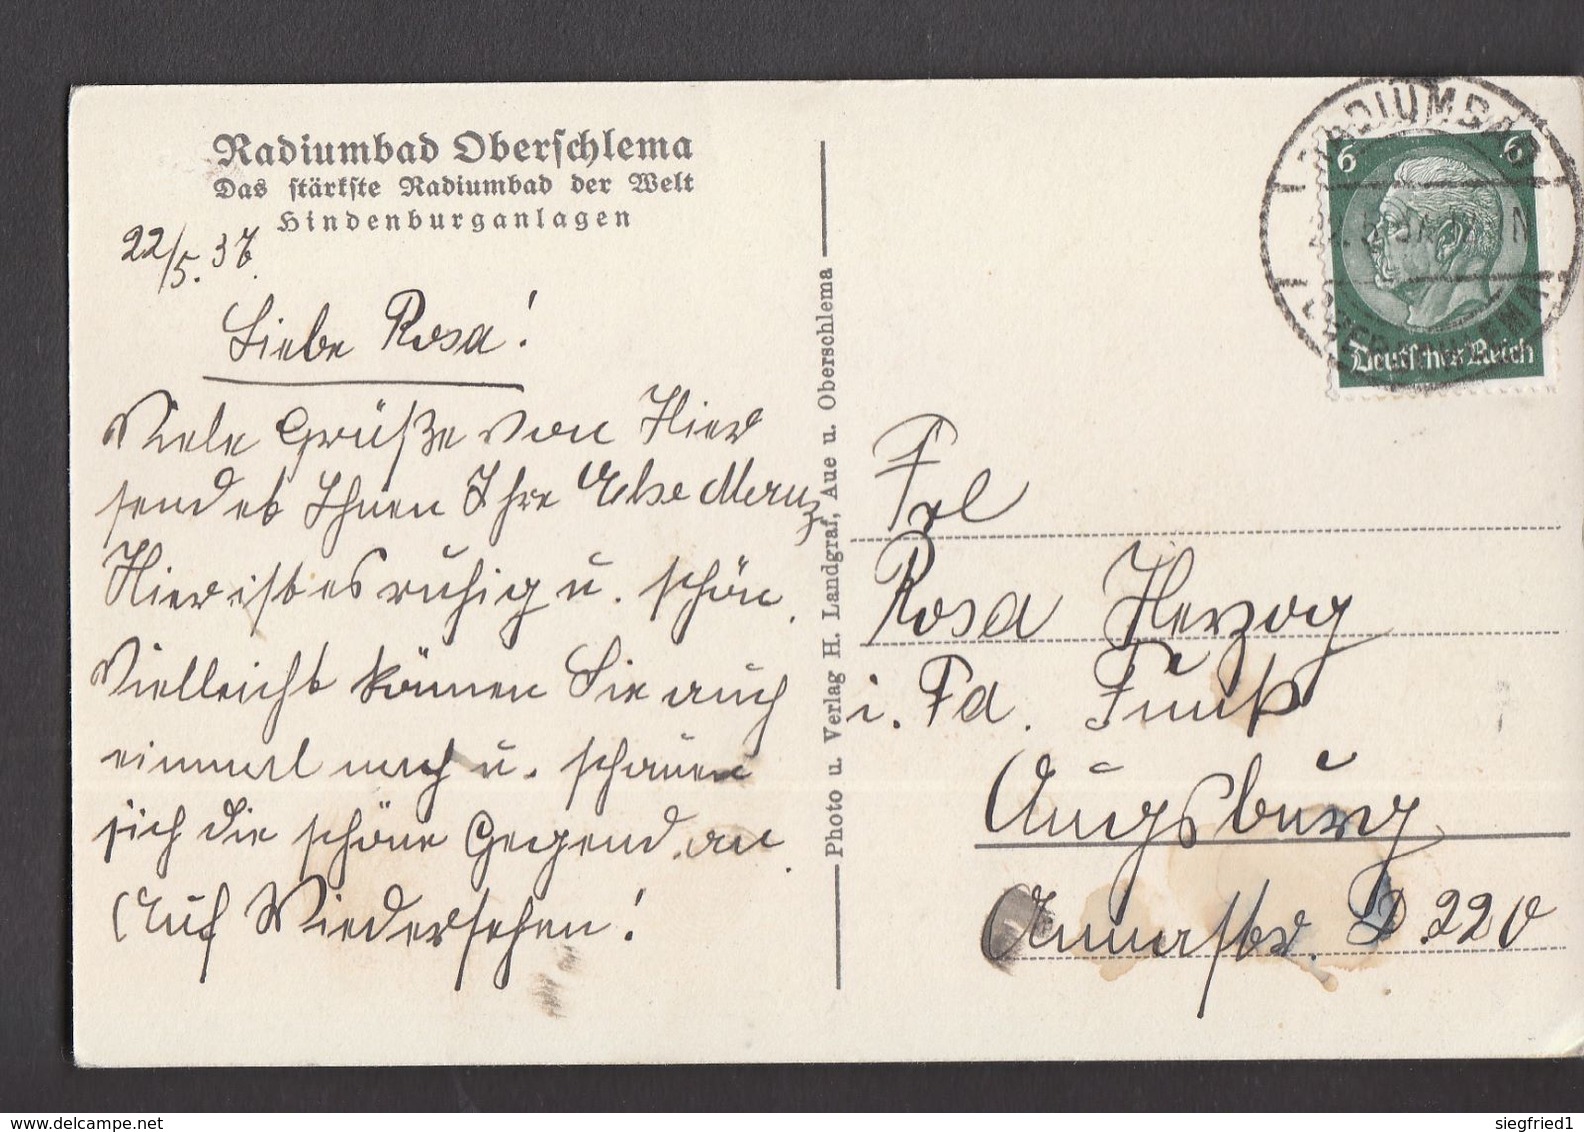 Radiumbad Oberschlema
Das stärkste Radiumbad der Welt
Hindenburganlagen
22/5. 37.
Liebe Rosa!
Viele Grüße von Hier
sendet Ihnen Ihre Else Menz
Hier ist es ruhig u. schön.
Vielleicht können Sie auch
einmal nach u. schauen
sich die schöne Gegend an.
Auf Wiedersehen!
Photo u. Verlag H. Landgraf, Aue u. Oberschlema
RADIUMBAD
OBERSCHLEMA
6 6
Deutsches Reich
Frl
Rosa Herzog
i. Fa.
Augsburg
Annastr. D. 220
www.delcampe.net
siegfried1